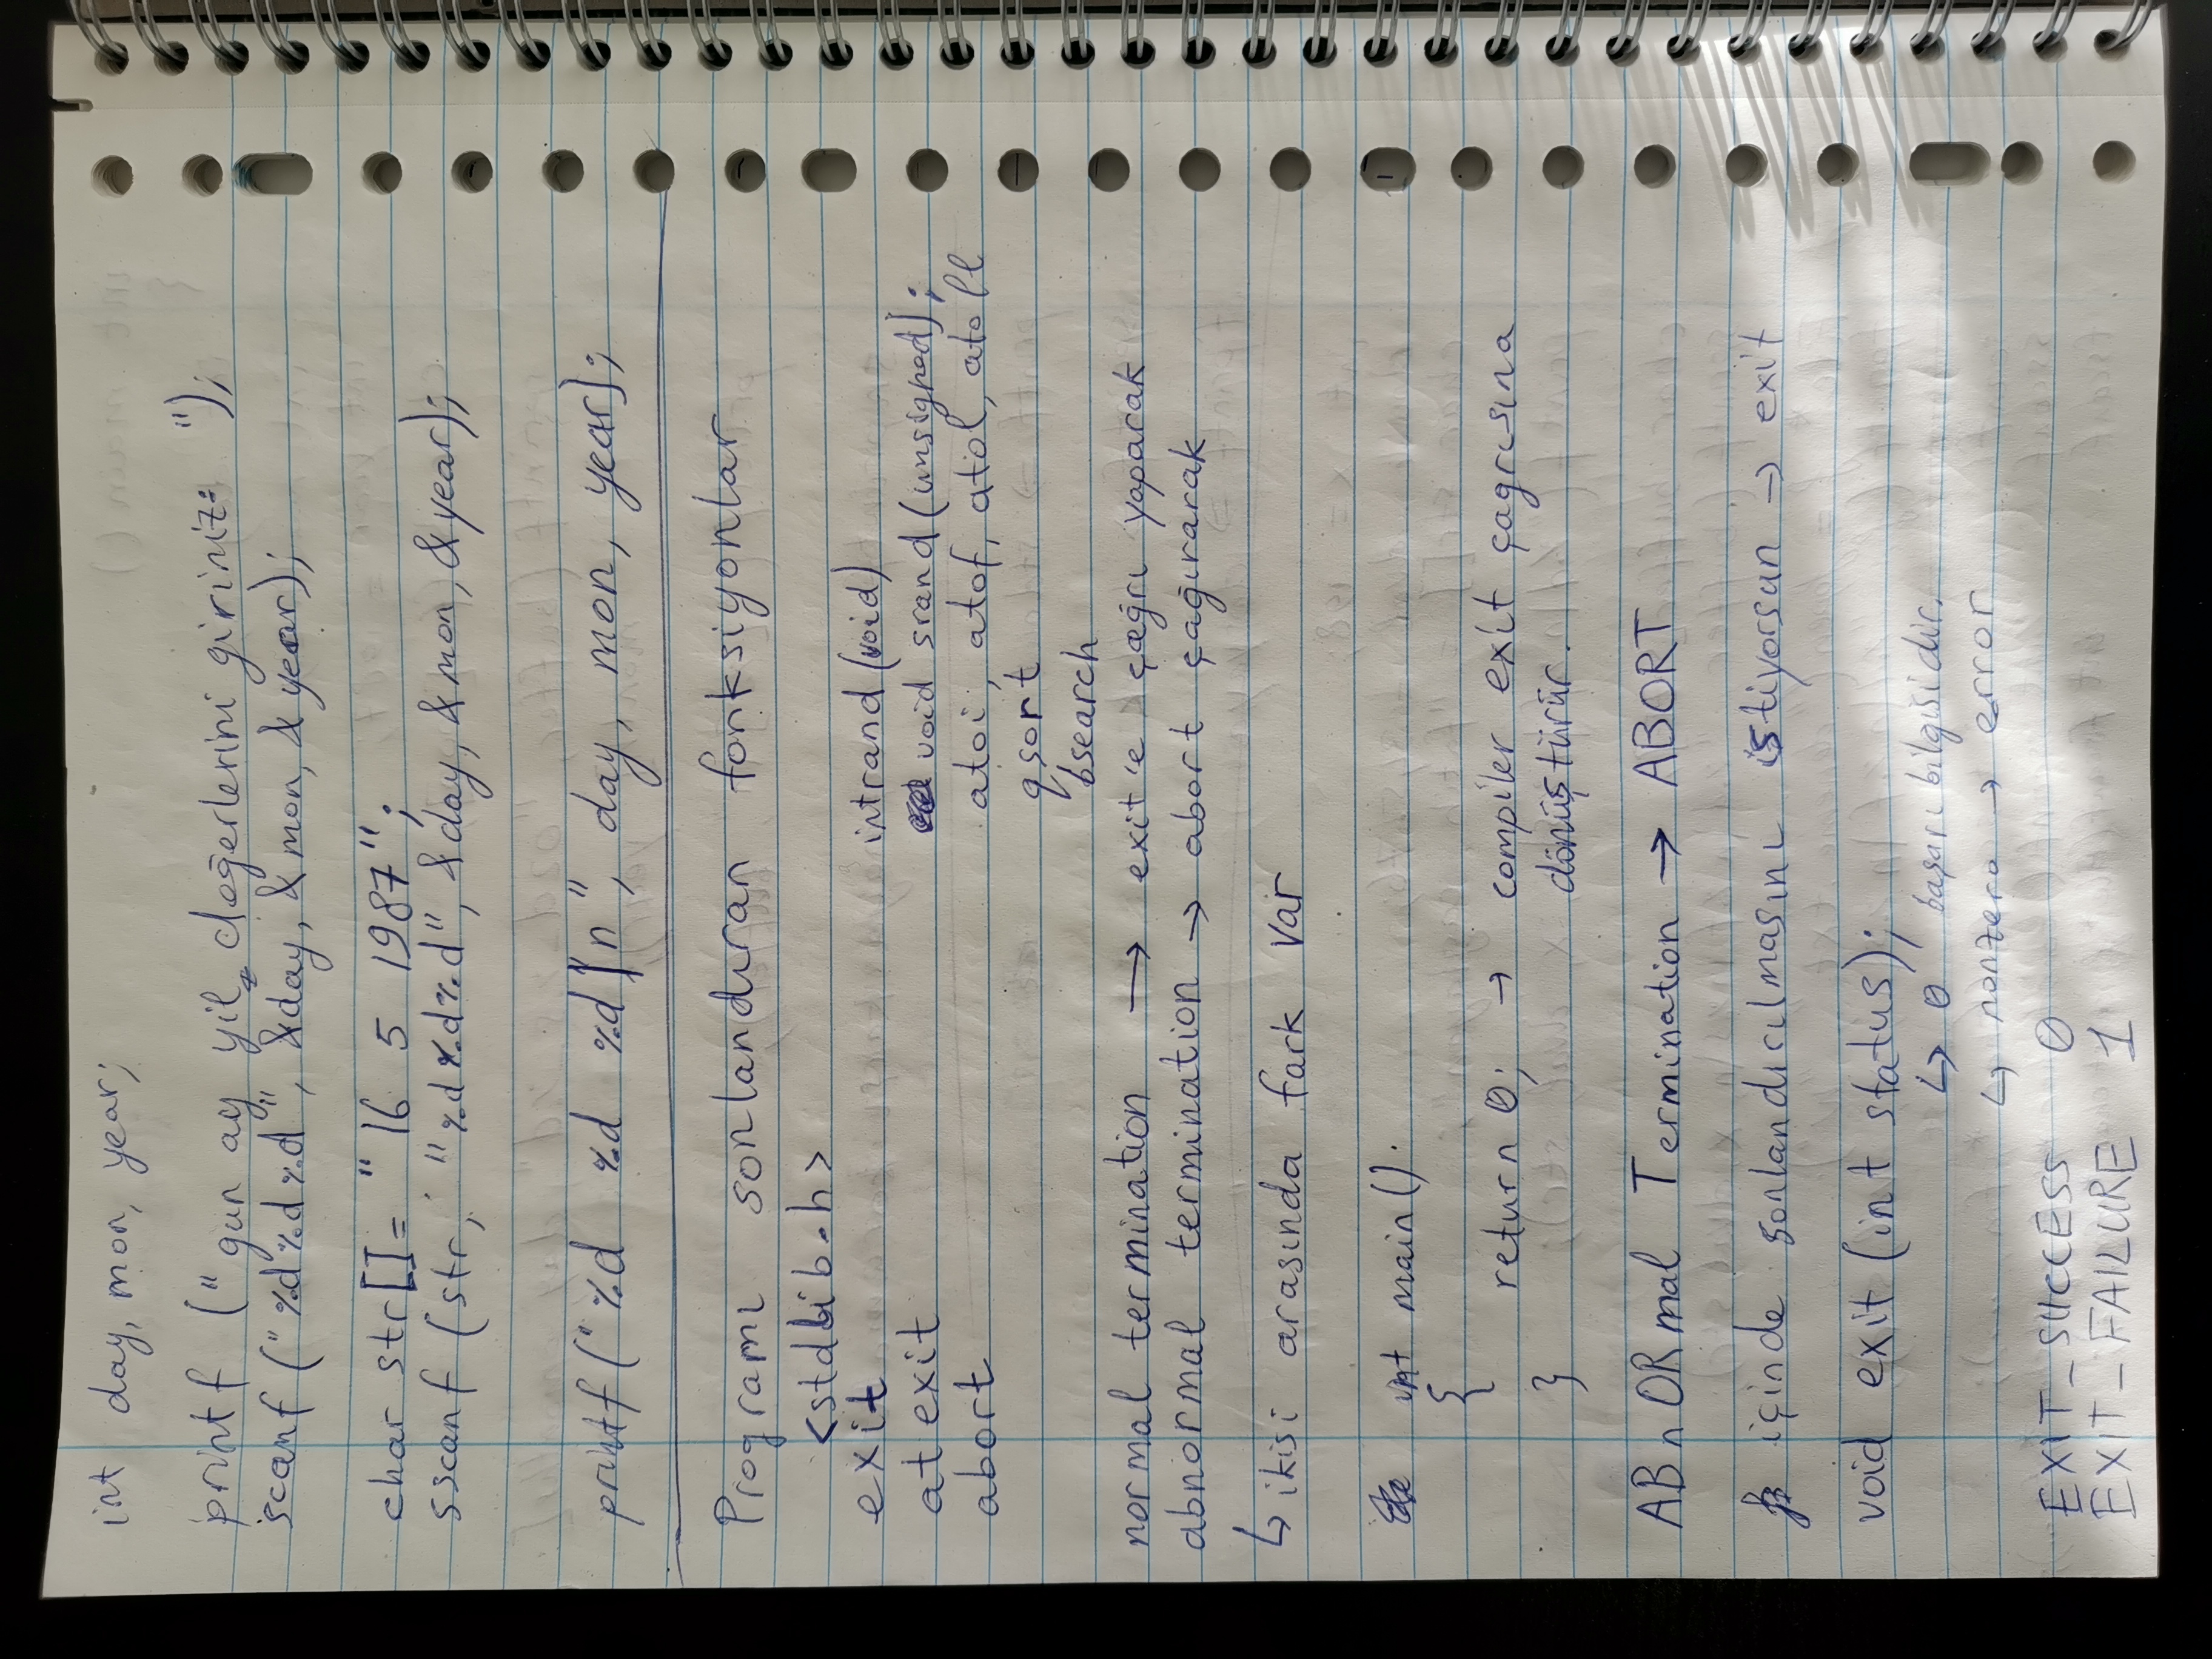 int day, mon, year;
printf (" gun ay yil değerlerini giriniz: ");
scanf ("%d%d%d", &day, &mon, &year);
char str[]= "16 5 1987";
sscanf (str, "%d%d%d", &day, &mon, &year);
printf("%d %d %d\n", day, mon, year);
Programı sonlandıran fonksiyonlar
<stdlib.h>
exit
atexit
abort
int rand (void)
void srand (unsigned);
atoi, atof, atol, atoll
qsort
bsearch
normal termination → exit'e çağrı yaparak
abnormal termination → abort çağırarak
↳ ikisi arasında fark var
int main()
{
return 0; → compiler exit çagrısına
dönüştürür.
}
ABnORmal Termination → ABORT
içinde sonlandırılmasını istiyorsan → exit
void exit (int status);
↳ 0 başarı bilgisidir.
↳ nonzero → error
EXIT_SUCCESS 0
EXIT_FAILURE 1